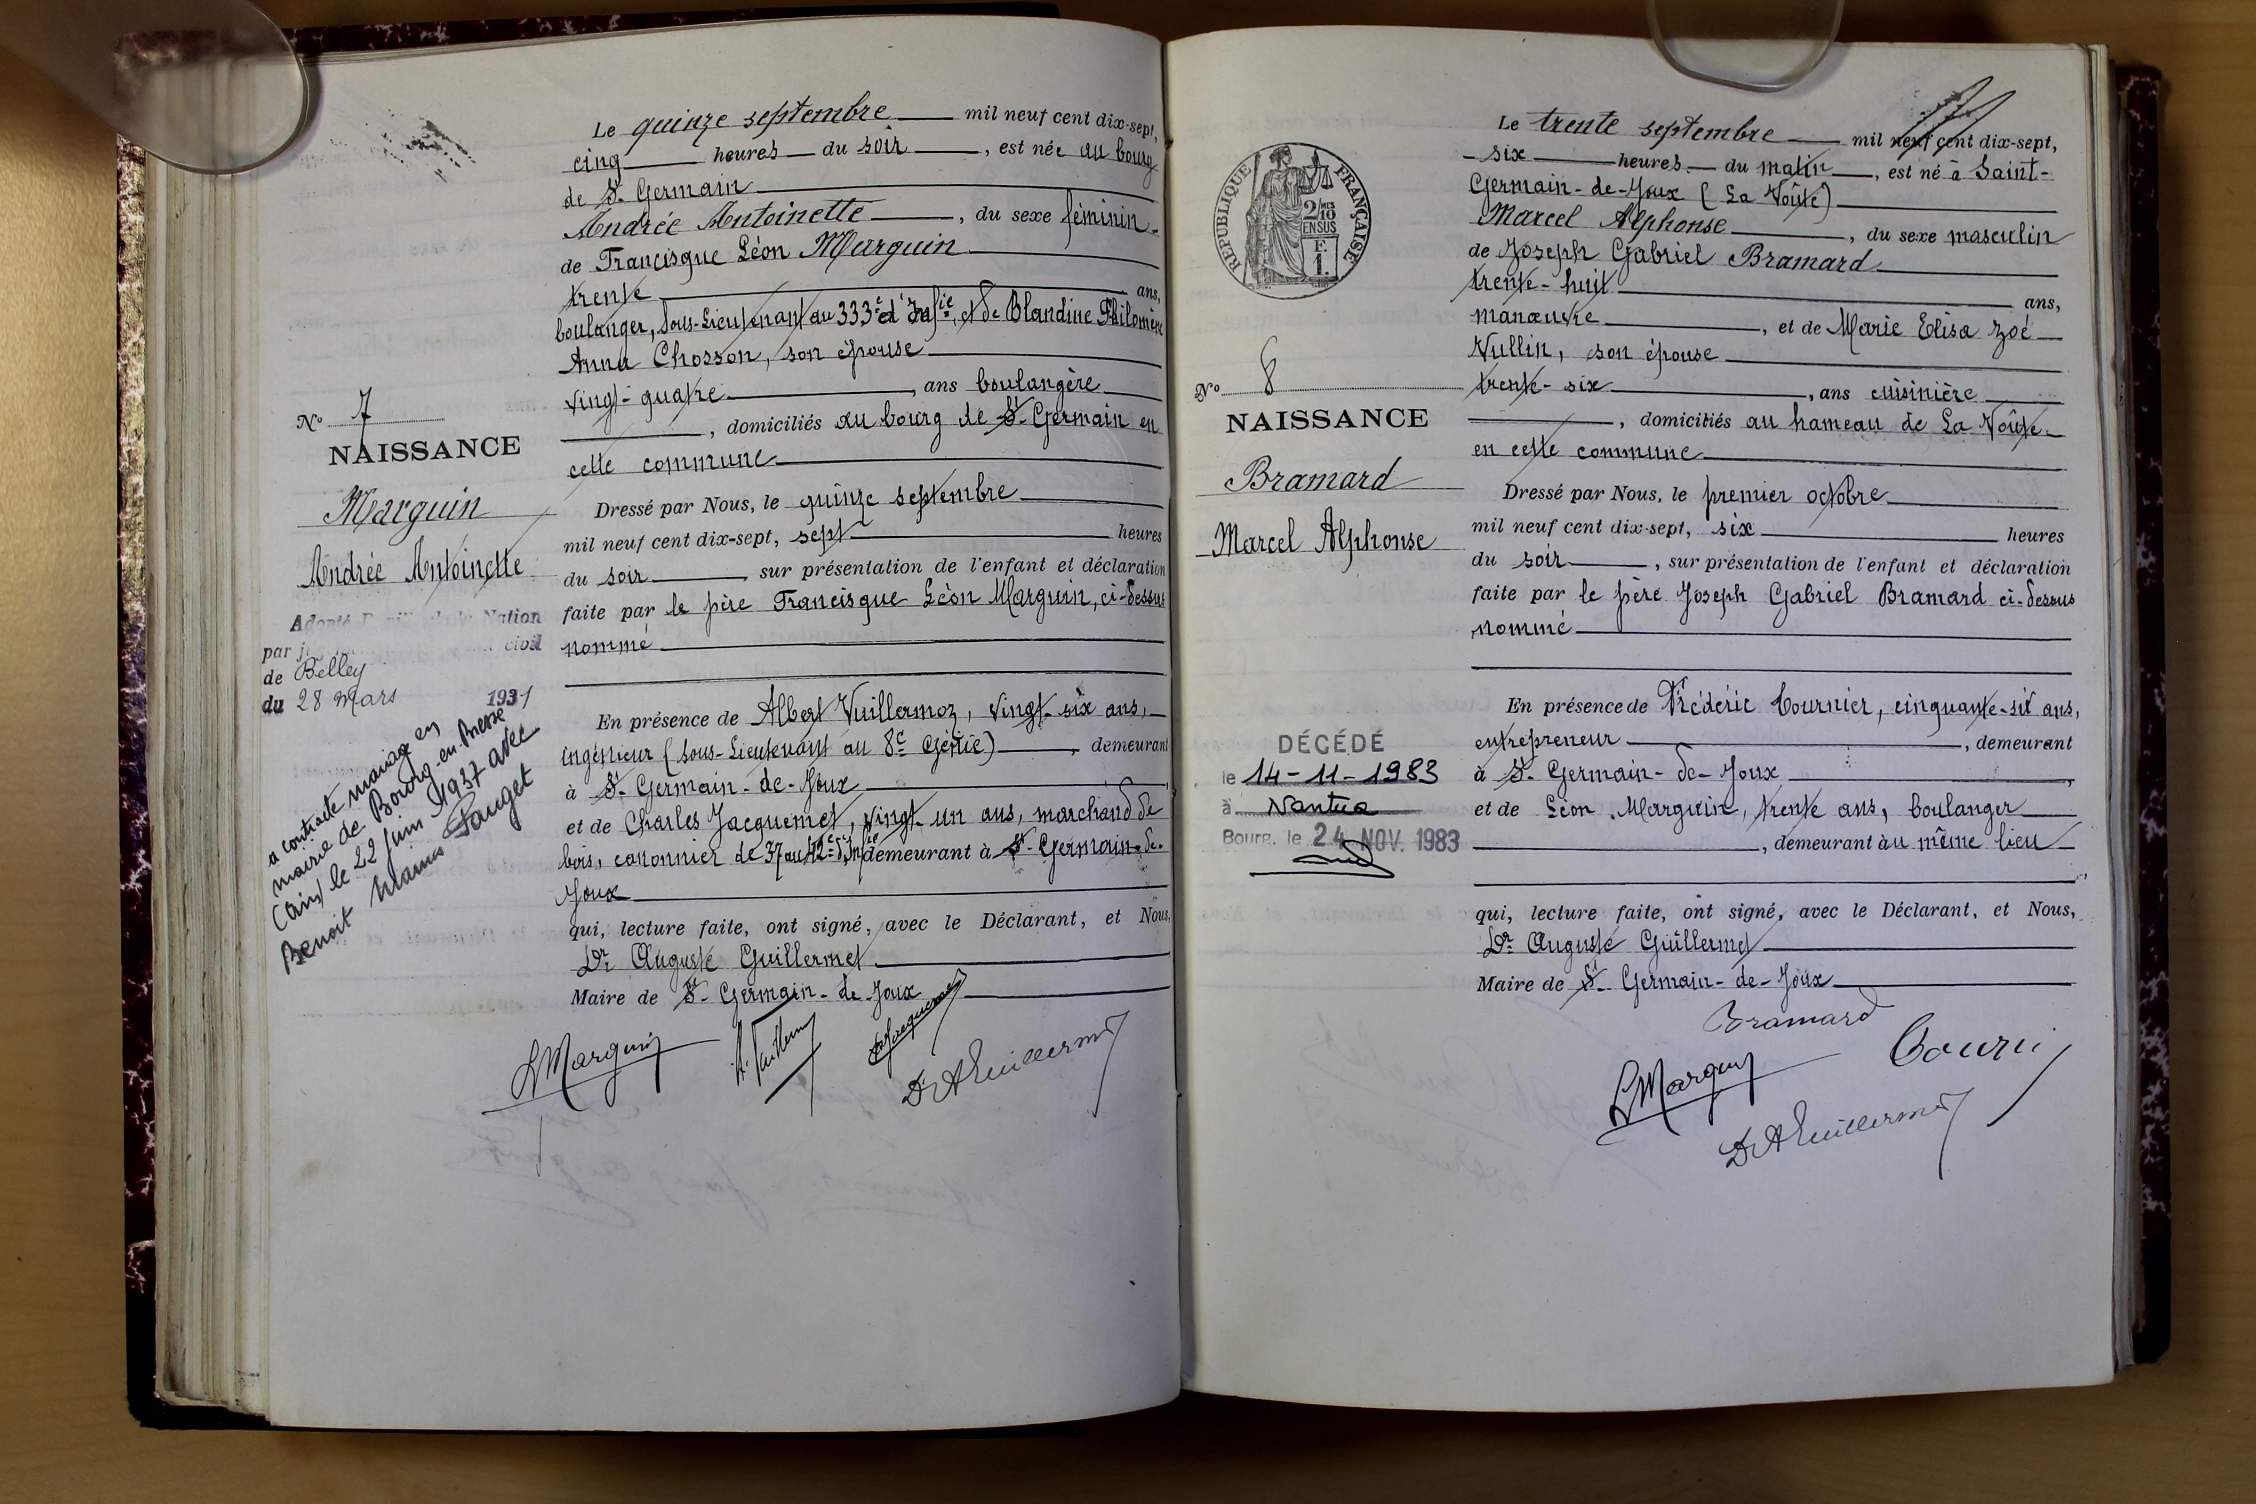 Le quinze septembre mil neuf cent dix-sept,
cinq heures du soir, est née au bourg
de St Germain
Andrée Antoinette, du sexe féminin
de Francisque Léon Marguin
trente ans,
boulanger, Sous-Lieutenant au 333e d'Infie, et de Blandine Philomène
Anna Chosson, son épouse
vingt-quatre, ans boulangère
, domiciliés au bourg de St Germain en
cette commune
Dressé par Nous, le quinze septembre
mil neuf cent dix-sept, sept heures
du soir, sur présentation de l'enfant et déclaration
faite par le père Francisque Léon Marguin, ci-dessus
nommé
En présence de Albert Vuillermoz, vingt-six ans,
ingénieur (Sous-Lieutenant au 8e Génie), demeurant
à St Germain-de-Joux
et de Charles Jacquemet, vingt-un ans, marchand de
bois, canonnier de 37 au 42e d'Infie demeurant à St Germain-de-
Joux
qui, lecture faite, ont signé, avec le Déclarant, et Nous,
Dr Auguste Guillermet
Maire de St Germain-de-Joux
L Marguin
Jacquemet
Dr A Guillermet
No 7
NAISSANCE
Marguin
Andrée Antoinette
Adopté la Nation
par civil
de Belley
du 28 Mars 1931
a contracté mariage en
mairie de Bourg-en-Bresse
(Ain) le 22 juin 1937 avec
Benoit Marius Pauget
RÉPUBLIQUE FRANÇAISE
2/10
MES
EN SUS
F.
1.
No 8
NAISSANCE
Bramard
Marcel Alphonse
DÉCÉDÉ
le 14-11-1983
à Nantua
Bourg, le 24 NOV. 1983
Le trente septembre mil neuf cent dix-sept,
six heures du matin, est né à Saint-
Germain-de-Joux (La Voûte)
Marcel Alphonse, du sexe masculin
de Joseph Gabriel Bramard
trente-huit ans,
manœuvre, et de Marie Elisa Zoé
Vullin, son épouse
trente-six, ans cuisinière
, domiciliés au hameau de La Voûte
en cette commune
Dressé par Nous, le premier octobre
mil neuf cent dix-sept, six heures
du soir, sur présentation de l'enfant et déclaration
faite par le père Joseph Gabriel Bramard ci-dessus
nommé
En présence de Frédéric Tournier, cinquante-six ans,
entrepreneur, demeurant
à St Germain-de-Joux
et de Léon Marguin, trente ans, boulanger
, demeurant au même lieu
qui, lecture faite, ont signé, avec le Déclarant, et Nous,
Dr Auguste Guillermet
Maire de St Germain-de-Joux
Bramard
L Marguin
Dr A Guillermet